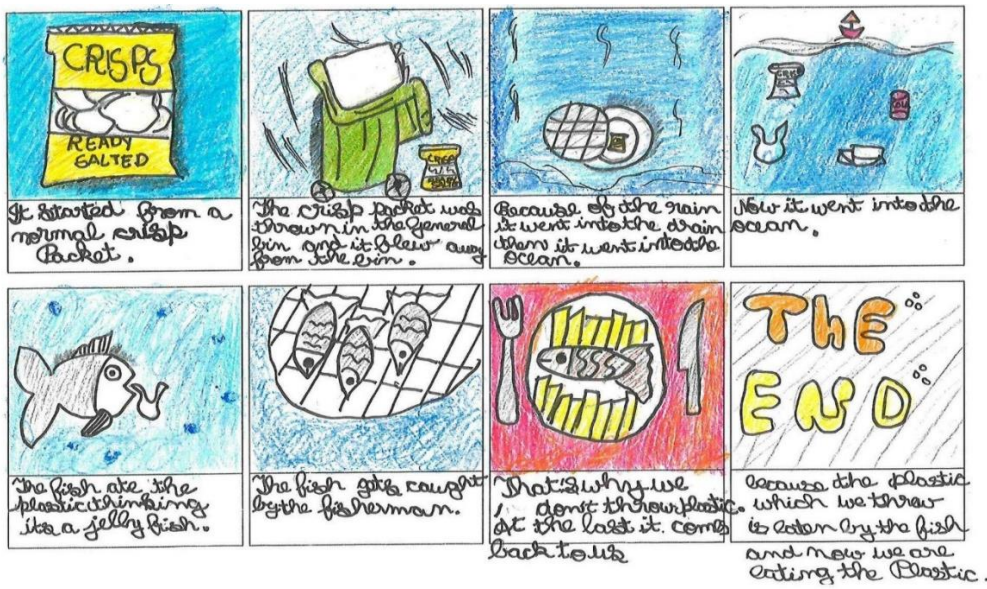 CRISPS
READY
SALTED
It started from a
normal crisp
Packet.
The crisp packet was
thrown in the general
bin and it blew away
from the bin.
Because of the rain
it went into the drain
then it went into the
ocean.
Now it went into the
ocean.
The fish ate the
plastic thinking
its a jelly fish.
The fish gets caught
by the fisherman.
That's why we
don't throw plastic.
At the last it. comes
back to us
THE
END
because the plastic
which we threw
is eaten by the fish
and now we are
eating the Plastic.